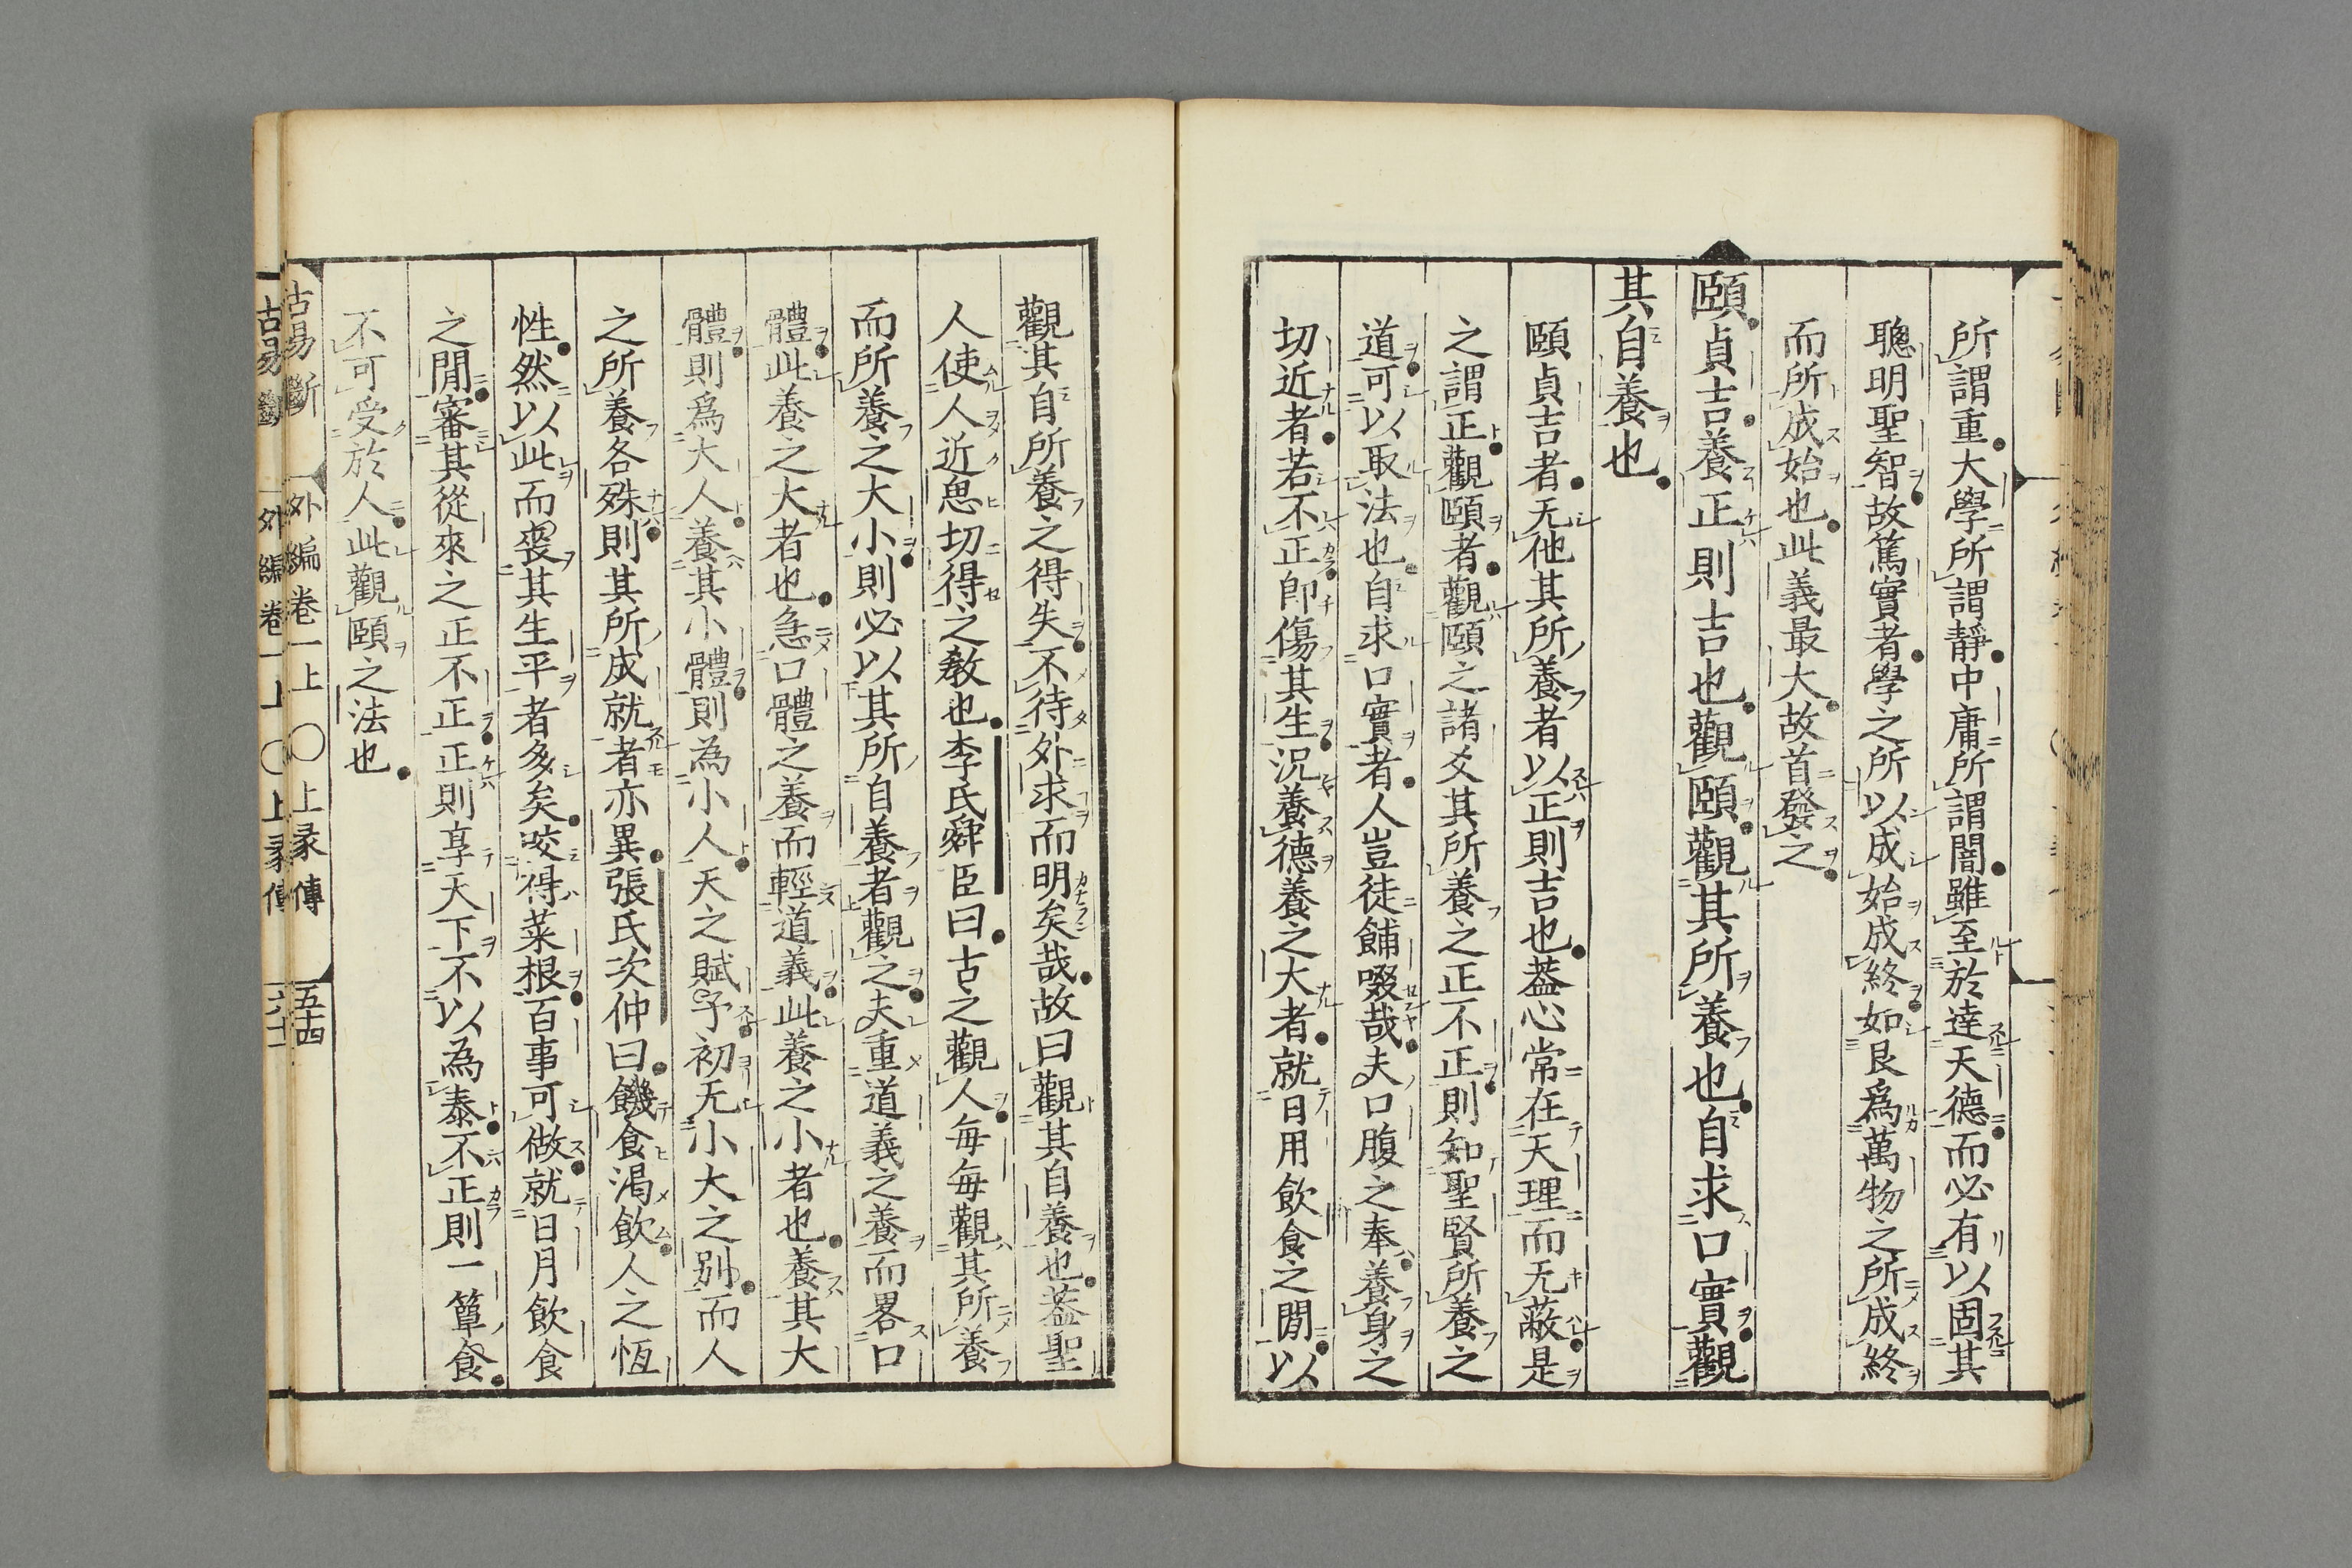 所謂重大學所謂靜中庸所謂闇雖至於達天德而必有以固其
聰明聖智故篤實者學之所以成始成終如艮爲萬物之所成終
而所成始也此義最大故首發之
頤貞吉養正則吉也觀頤觀其所養也自求口實觀
其自養也
頤貞吉者无他其所養者以正則吉也蓋心常在天理而无蔽是
之謂正觀頤者觀頤之諸爻其所養之正不正則知聖賢所養之
道可以取法也自求口實者人豈徒餔啜哉夫口腹之奉養身之
切近者若不正卽傷其生況養德養之大者就日用飲食之閒以
觀其自所養之得失不待外求而明矣哉故曰觀其自養也蓋聖
人使人近思切得之敎也李氏舜臣曰古之觀人毎毎觀其所養
而所養之大小則必以其所自養者觀之夫重道義之養而畧口
體此養之大者也急口體之養而輕道義此養之小者也養其大
體則爲大人養其小體則為小人天之賦予初无小大之别而人
之所養各殊則其所成就者亦異張氏次仲曰饑食渴飲人之恆
性然以此而喪其生平者多矣咬得菜根百事可做就日月飲食
之閒審其從來之正不正正則享天下不以為泰不正則一簞食
不可受於人此觀頤之法也
古易斷 外編卷一上 〇上彖傳 五十四
古易斷 外編卷一上 〇上彖傳